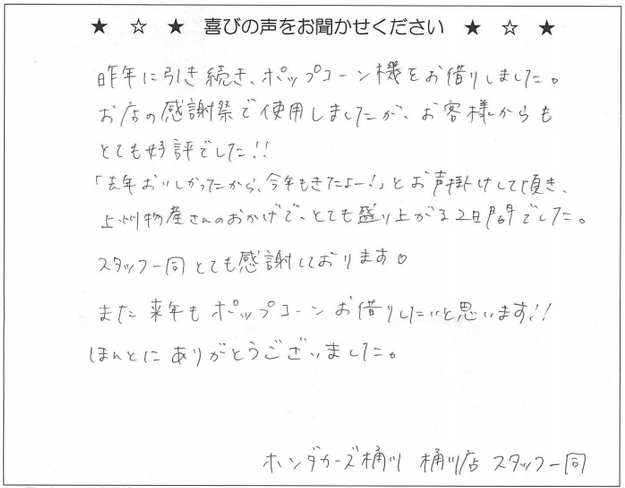 ★ ☆ ★ 喜びの声をお聞かせください ★ ☆ ★
昨年に引き続き、ポップコーン機をお借りしました。
お店の感謝祭で使用しましたが、お客様からも
とても好評でした!!
「去年おいしかったから、今年もきたよー!」とお声掛けして頂き、
上州物産さんのおかげで、とても盛り上がる2日間でした。
スタッフ一同とても感謝しております♡
また来年もポップコーンお借りしたいと思います!!
ほんとにありがとうございました。
ホンダカーズ桶川 桶川店 スタッフ一同